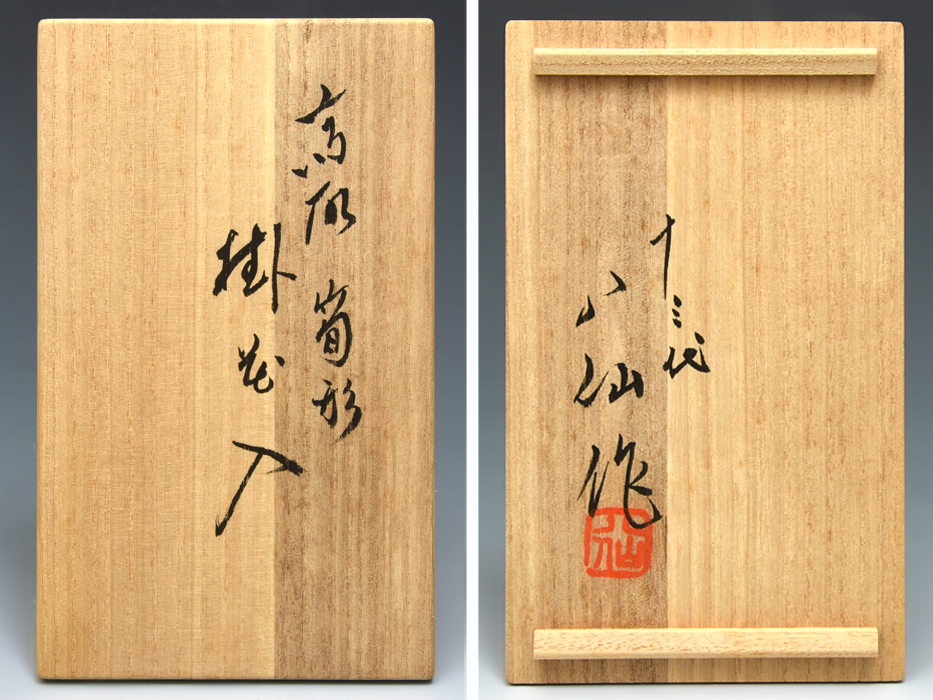 高取 筍形
掛花入
十三代
八仙作
八仙